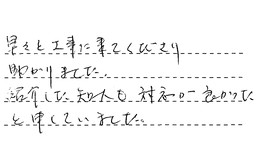 早々と工事に来てくださり
助かりました。
紹介した知人も対応が良かった
と申していました。